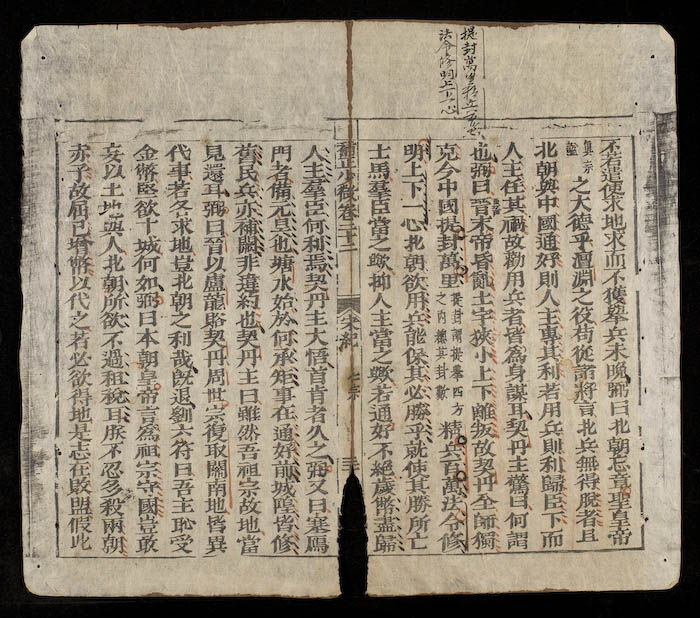 提封萬里精兵百萬
法令修明上下一心
不若遣使求地求而不獲舉兵未晚弼曰北朝忘章聖皇帝
眞宗
之大德乎澶淵之役苟從諸將言北兵無得脫者且
北朝與中國通好則人主專其利若用兵則利歸臣下而
人主任其禍故勸用兵者皆爲身謀耳契丹主驚曰何謂
也弼曰晉末帝昏亂土宇狹小上下離叛故契丹全師獨
克今中國提封萬里提封謂提舉四方之內總其封數精兵百萬法令修
明上下一心北朝欲用兵能保其必勝乎就使其勝所亡
士馬羣臣當之歟抑人主當之歟若通好不絶歲幣盡歸
少微卷三十二 宋紀 仁宗
人主羣臣何利焉契丹主大悟首肯者久之弼又曰塞鴈
門者備元昊也塘水始於何承矩事在通好前城隍皆修
舊民兵亦補闕非違約也契丹主曰雖然吾祖宗故地當
見還耳弼曰晉以盧龍賂契丹周世宗復取關南地皆異
代事若各求地豈北朝之利哉旣退劉六符曰吾主恥受
金幣堅欲十城何如弼曰本朝皇帝言爲祖宗守國豈敢
妄以土地與人北朝所欲不過租稅耳朕不忍多殺兩朝
赤子故屈已增幣以代之若必欲得地是志在敗盟假此